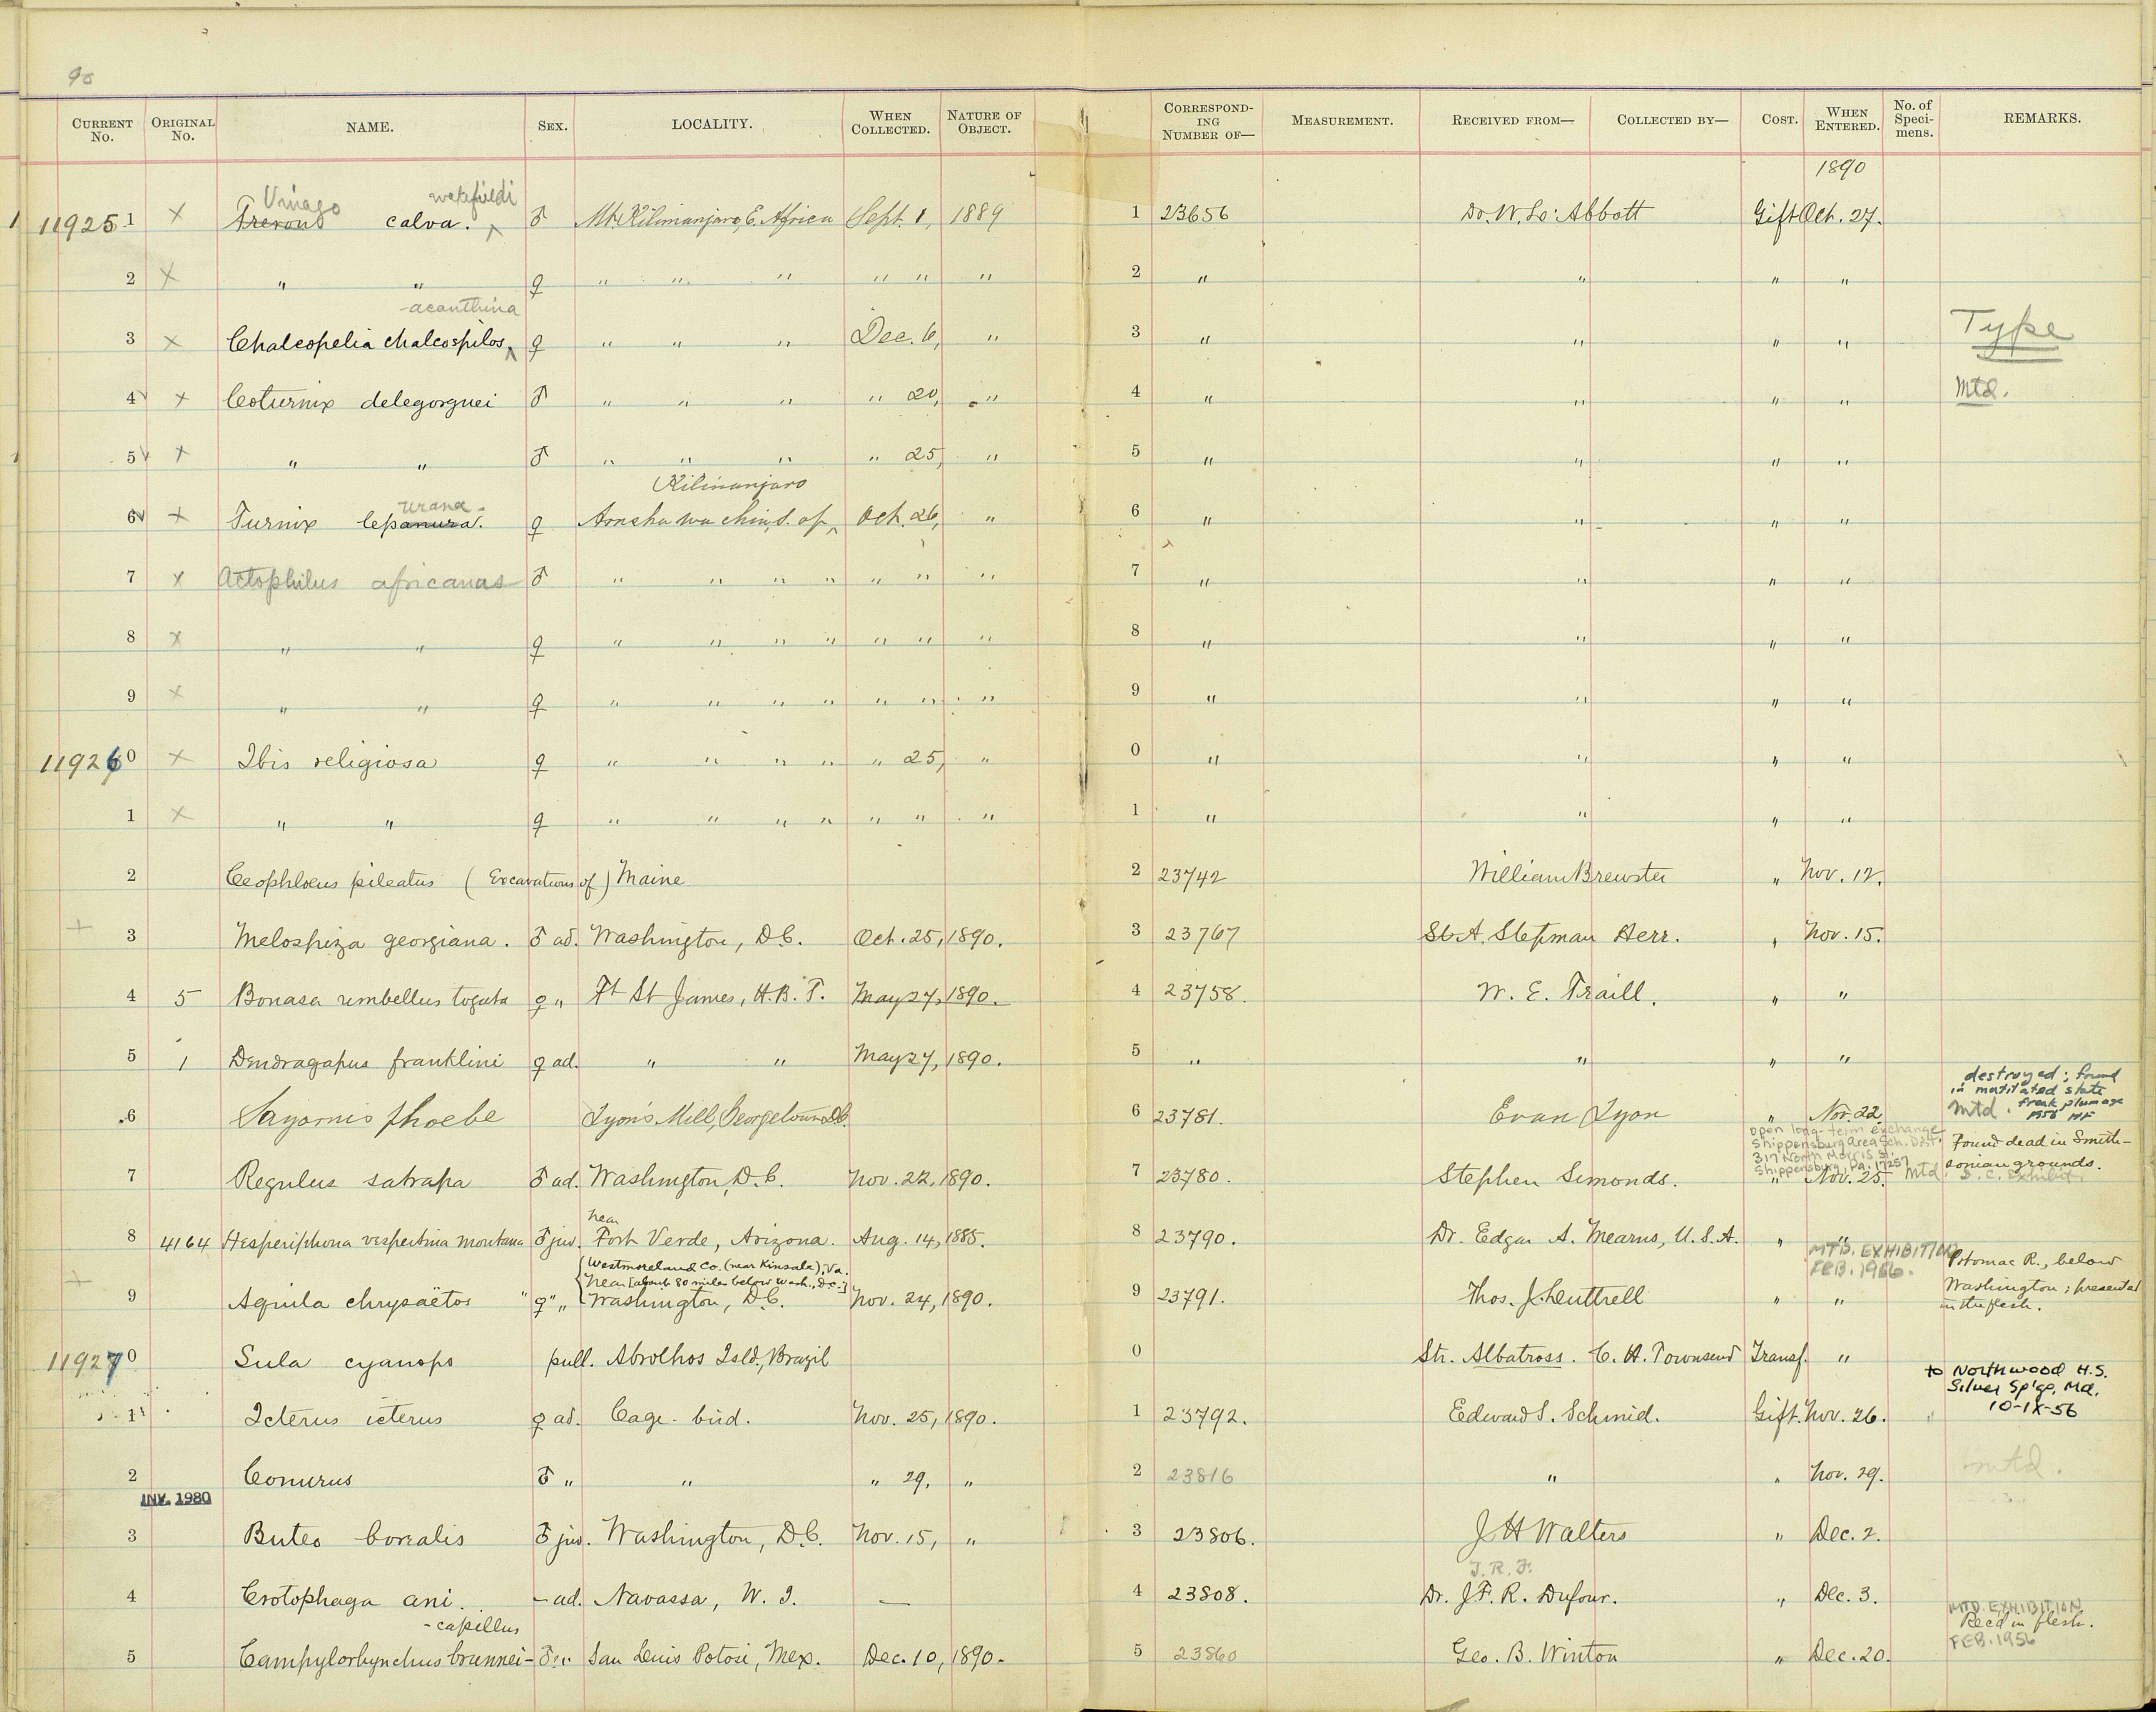 90
CURRENT No. ORIGINAL No. NAME. SEX. LOCALITY. WHEN COLLECTED. NATURE OF OBJECT. CORRESPONDING NUMBER OF— MEASUREMENT. RECEIVED FROM— COLLECTED BY— COST. WHEN ENTERED. No. of Specimens. REMARKS.
1890
Vinago wakefieldi
119251 × Trerons calva. ♂ Mt. Kilimanjaro, E. Africa Sept. 1, 1889 1 23656 Dr. W. L. Abbott Gift Oct. 27.
2 × " " ♀ " " " " " " 2 " " " "
acanthina
3 × Chalcopelia chalcospilos ♀ " " " Dec. 6, " 3 " " " " Type
4 × Coturnix delegorguei ♂ " " " " 20, " 4 " " " " Mtd.
5 × " " ♂ " " " " 25, " 5 " " " "
urana. Kilimanjaro
6 × Turnix lepanura. ♀ Arusha wa chini, S. of Oct. 26, " 6 " " " "
7 × Actophilus africanus ♂ " " " " " " " 7 " " " "
8 × " " ♀ " " " " " " " 8 " " " "
9 × " " ♀ " " " " " " " 9 " " " "
119260 × Ibis religiosa ♀ " " " " " 25, " 0 " " " "
1 × " " ♀ " " " " " " " 1 " " " "
2 Ceophloeus pileatus (Excavations of) Maine 2 23742 William Brewster " Nov. 12.
+ 3 Melospiza georgiana. ♂ ad. Washington, D.C. Oct. 25, 1890. 3 23767 Herr. , Nov. 15.
4 5 Bonasa umbellus togata ♀ " Ft St James, H.B.T. May 27, 1890. 4 23758. W. E. Traill. " "
5 1 Dendragapus franklini ♀ ad. " " May 27, 1890. 5 " " " "
destroyed; found
in mutilated state
freak plumage
1956
6 Sayornis phoebe Lyon's Mill, Georgetown D.C. 6 23781. Evan Lyon " Nov. 22 Mtd.
open long-term exchange
Shippensburg Area Sch. Dist.
317 North Morris St.
Shippensburg, Pa. 17257
Found dead in Smith-
sonian grounds.
7 Regulus satrapa ♂ ad. Washington, D.C. Nov. 22, 1890. 7 23780. Stephen Simonds. " Nov. 25. Mtd. S.C. Exhibit.
near
8 4164 Hesperiphona vespertina montana ♂ juv. Fort Verde, Arizona. Aug. 14, 1885. 8 23790. Dr. Edgar A. Mearns, U.S.A. " "
Westmoreland Co. (near Kinsale), Va.
near [about 80 miles below Wash., D.C.]
MTD. EXHIBITION
FEB. 1956.
+ 9 Aquila chrysaëtos " ♀ " " Washington, D.C. Nov. 24, 1890. 9 23791. Thos. J. Luttrell " "
Potomac R., below
Washington; presented
in the flesh.
119270 Sula cyanops pull. Abrolhos Isld., Brazil 0 Str. Albatross. C. H. Townsend Transf. "
to Northwood H.S.
Silver Sp'gs, Md.
10-IX-56
1 Icterus icterus ♀ ad. Cage-bird. Nov. 25, 1890. 1 23792. Edward S. Schmid. Gift. Nov. 26.
2 Conurus ♂ " " " 29, " 2 23816 " " Nov. 29. mtd.
INV. 1980
3 Buteo borealis ♂ juv. Washington, D.C. Nov. 15, " 3 23806. J H Walters " Dec. 2.
J. R. F.
4 Crotophaga ani. – ad. Navassa, W. I. — 4 23808. Dr. J. F. R. Dufour. " Dec. 3.
-capillus
MTD. EXHIBITION
Recd in flesh.
FEB. 1956
5 Campylorhynchus brunnei- ♂ " San Luis Potosi, Mex. Dec. 10, 1890. 5 23860 Geo. B. Winton " Dec. 20.